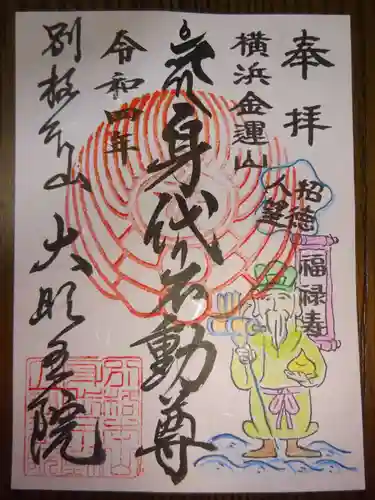 奉拝
横浜金運山
招徳
人望
福禄寿
身代り不動尊
令和四年
大明王院